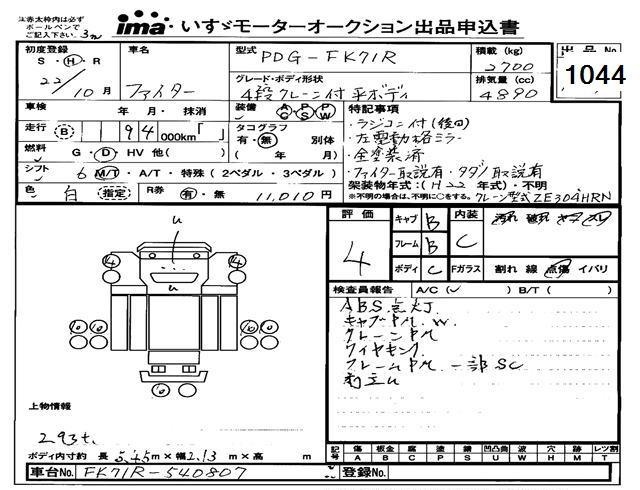 注赤太枠内は必ず
ボールペンで
ご記入下さい。
ima いすゞモーターオークション出品申込書
初度登録 車名 型式 PDG-FK71R 積載 (kg) 2700 出品No
S・H・R
22/10月 ファイター グレード・ボディ形状 4段クレーン付 平ボディ 排気量 (cc) 4890 1044
車検 年・月・抹消 装備 AC PS PW 特記事項
走行 B 94 000km「 」 タコグラフ 有・無 別体 ・ラジコン付(後回)
( 年 月) ・左電動格ミラー
燃料 G・D・HV 他( ) ・全塗装済
シフト 6 M/T・A/T・特殊(2ペダル・3ペダル) ・ファイター取説有・タダノ取説有
架装物年式:(H22 年式)・不明
色 白 指定 R券 有・無 11,010円 ※不明の場合は、不明に○をする。クレーン型式ZE304HRN
評価 キャブ B 内装
4 フレーム B C
ボディ C Fガラス 割れ 線 点傷 イバリ
検査員報告 A/C( ✓ ) B/T( )
ABS点灯
キャブPM.W.
クレーンPM
ワイヤキンク.
フレームPM 一部SC
上物情報
2.93t.
ボディ内寸約 長 5.45m×幅 2.13m×高 m
記号 傷 板金 腐 塗 錆 凹凸曲 波 穴 跡 レツ割
A B C P S U W H M T
車台No. FK71R-540807 登録No.